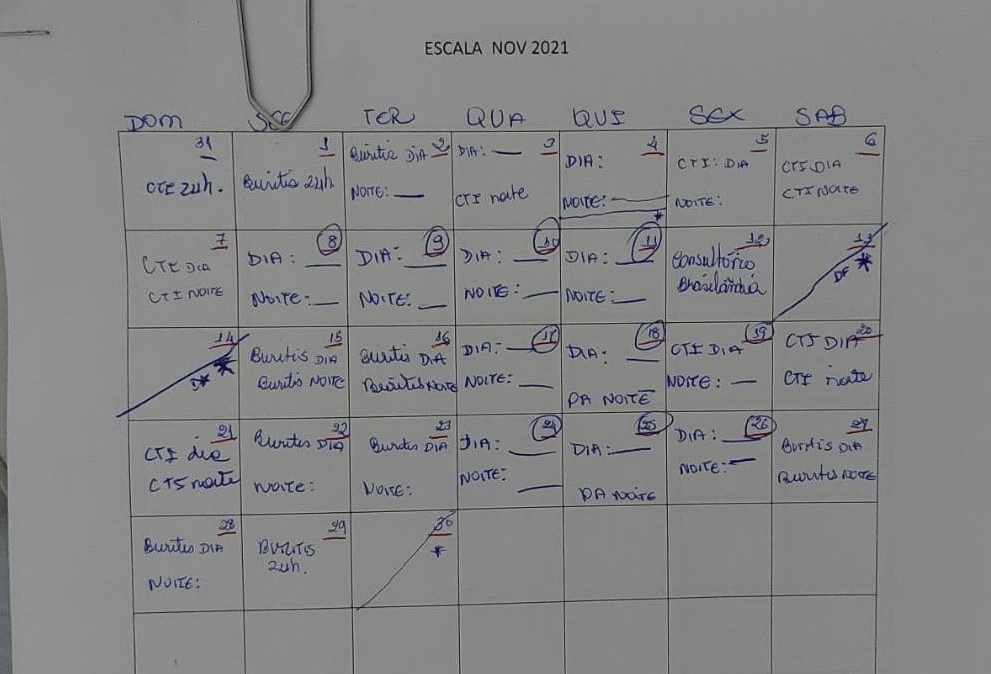 ESCALA NOV 2021
DOM SEG TER QUA QUI SEX SAB
31
CTI 24h.
1
Buritis 24h
2
Buritis DIA
NOITE: —
3
DIA: —
CTI noite
4
DIA:
NOITE: —
*
5
CTI: DIA
NOITE:
6
CTI DIA
CTI NOITE
7
CTI DIA
CTI NOITE
8
DIA: —
NOITE: —
9
DIA: —
NOITE: —
10
DIA: —
NOITE: —
11
DIA: —
NOITE: —
12
Consultório
Brasilândia
13
DF *
14
D* *
15
Buritis DIA
Buritis NOITE
16
Buritis DIA
Buritis NOITE
17
DIA: —
NOITE: —
18
DIA: —
PA NOITE
19
CTI DIA
NOITE: —
20
CTI DIA
CTI noite
21
CTI dia
CTI noite
22
Buritis DIA
NOITE:
23
Buritis DIA
NOITE:
24
DIA: —
NOITE: —
25
DIA: —
PA NOITE
26
DIA: —
NOITE: —
27
Buritis DIA
Buritis NOITE
28
Buritis DIA
NOITE:
29
BURITIS
24h.
30
*